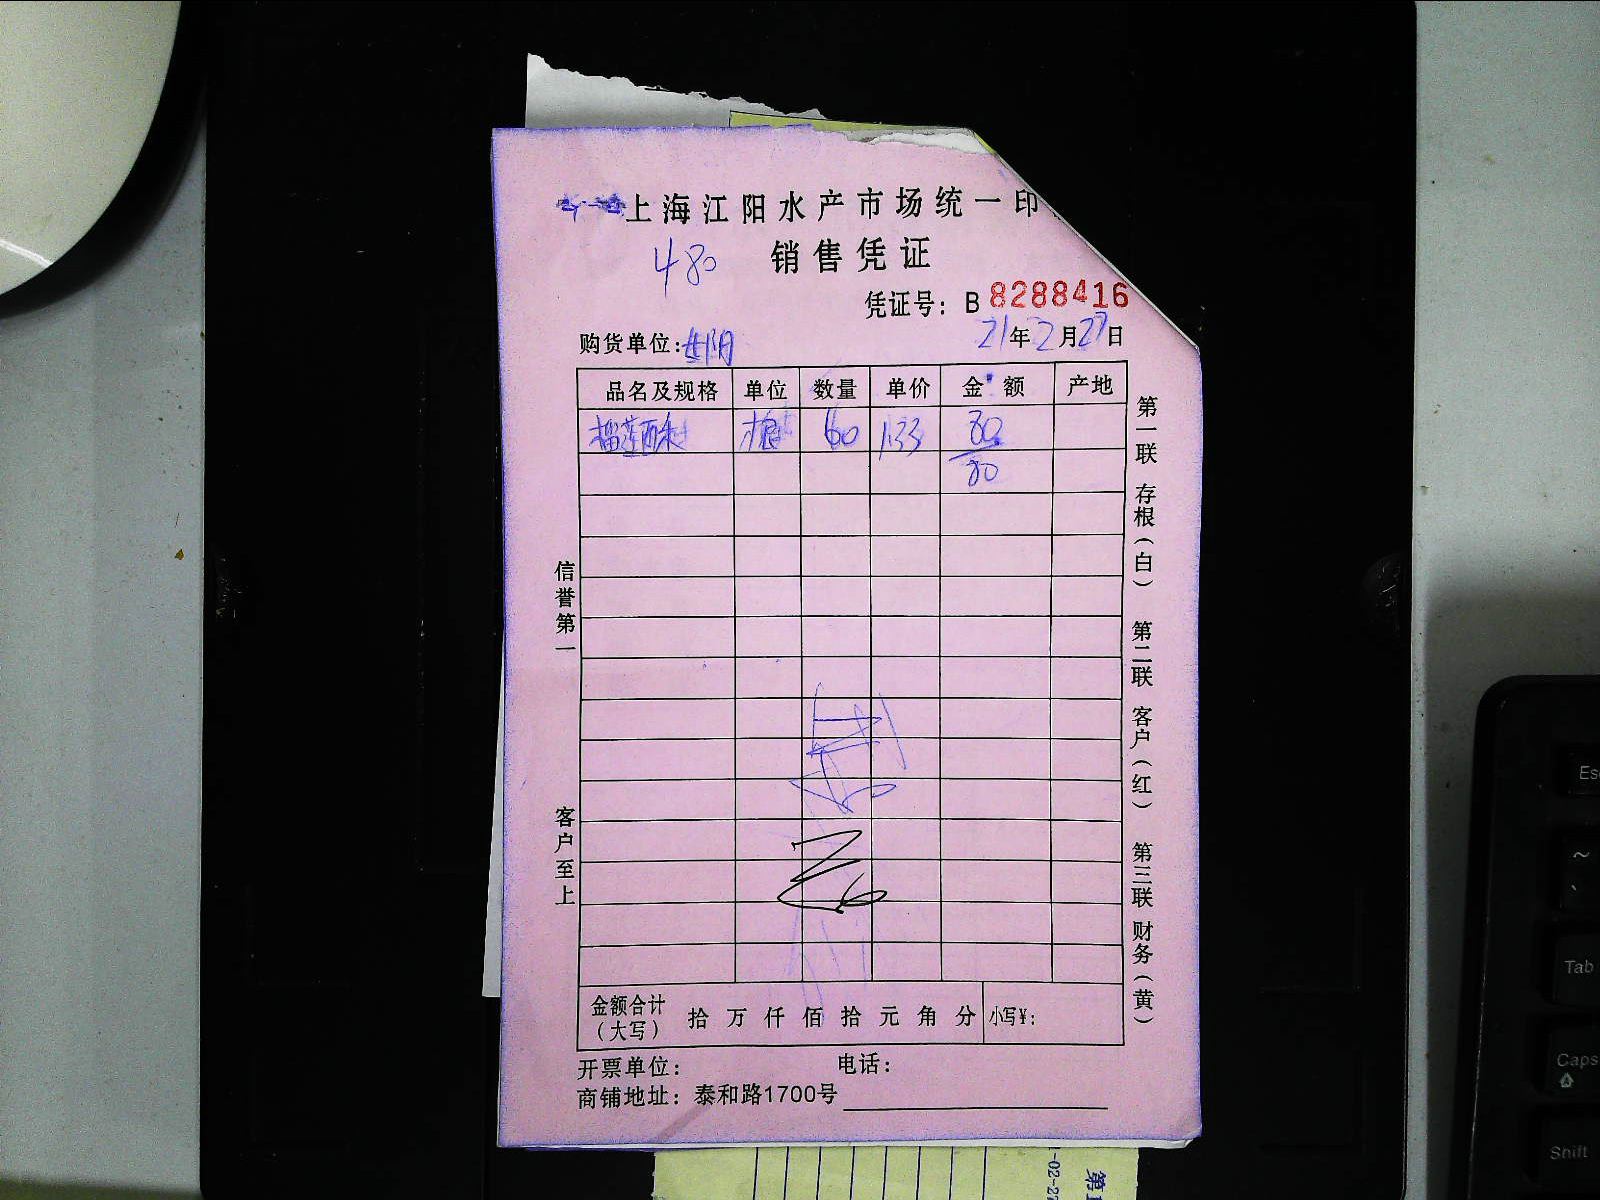 上海江阳水产市场统一印
480
销售凭证
凭证号：B 8288416
购货单位：
21年2月27日
品名及规格 单位 数量 单价 金额 产地
榴莲酥 根 60 1.33 80
80
第一联 存根（白） 第二联 客户（红） 第三联 财务（黄）
信誉第一 客户至上
金额合计（大写） 拾 万 仟 佰 拾 元 角 分 小写¥：
开票单位： 电话：
商铺地址：泰和路1700号
-02-27
第1
Esc
~
`
Tab
Caps
Shift